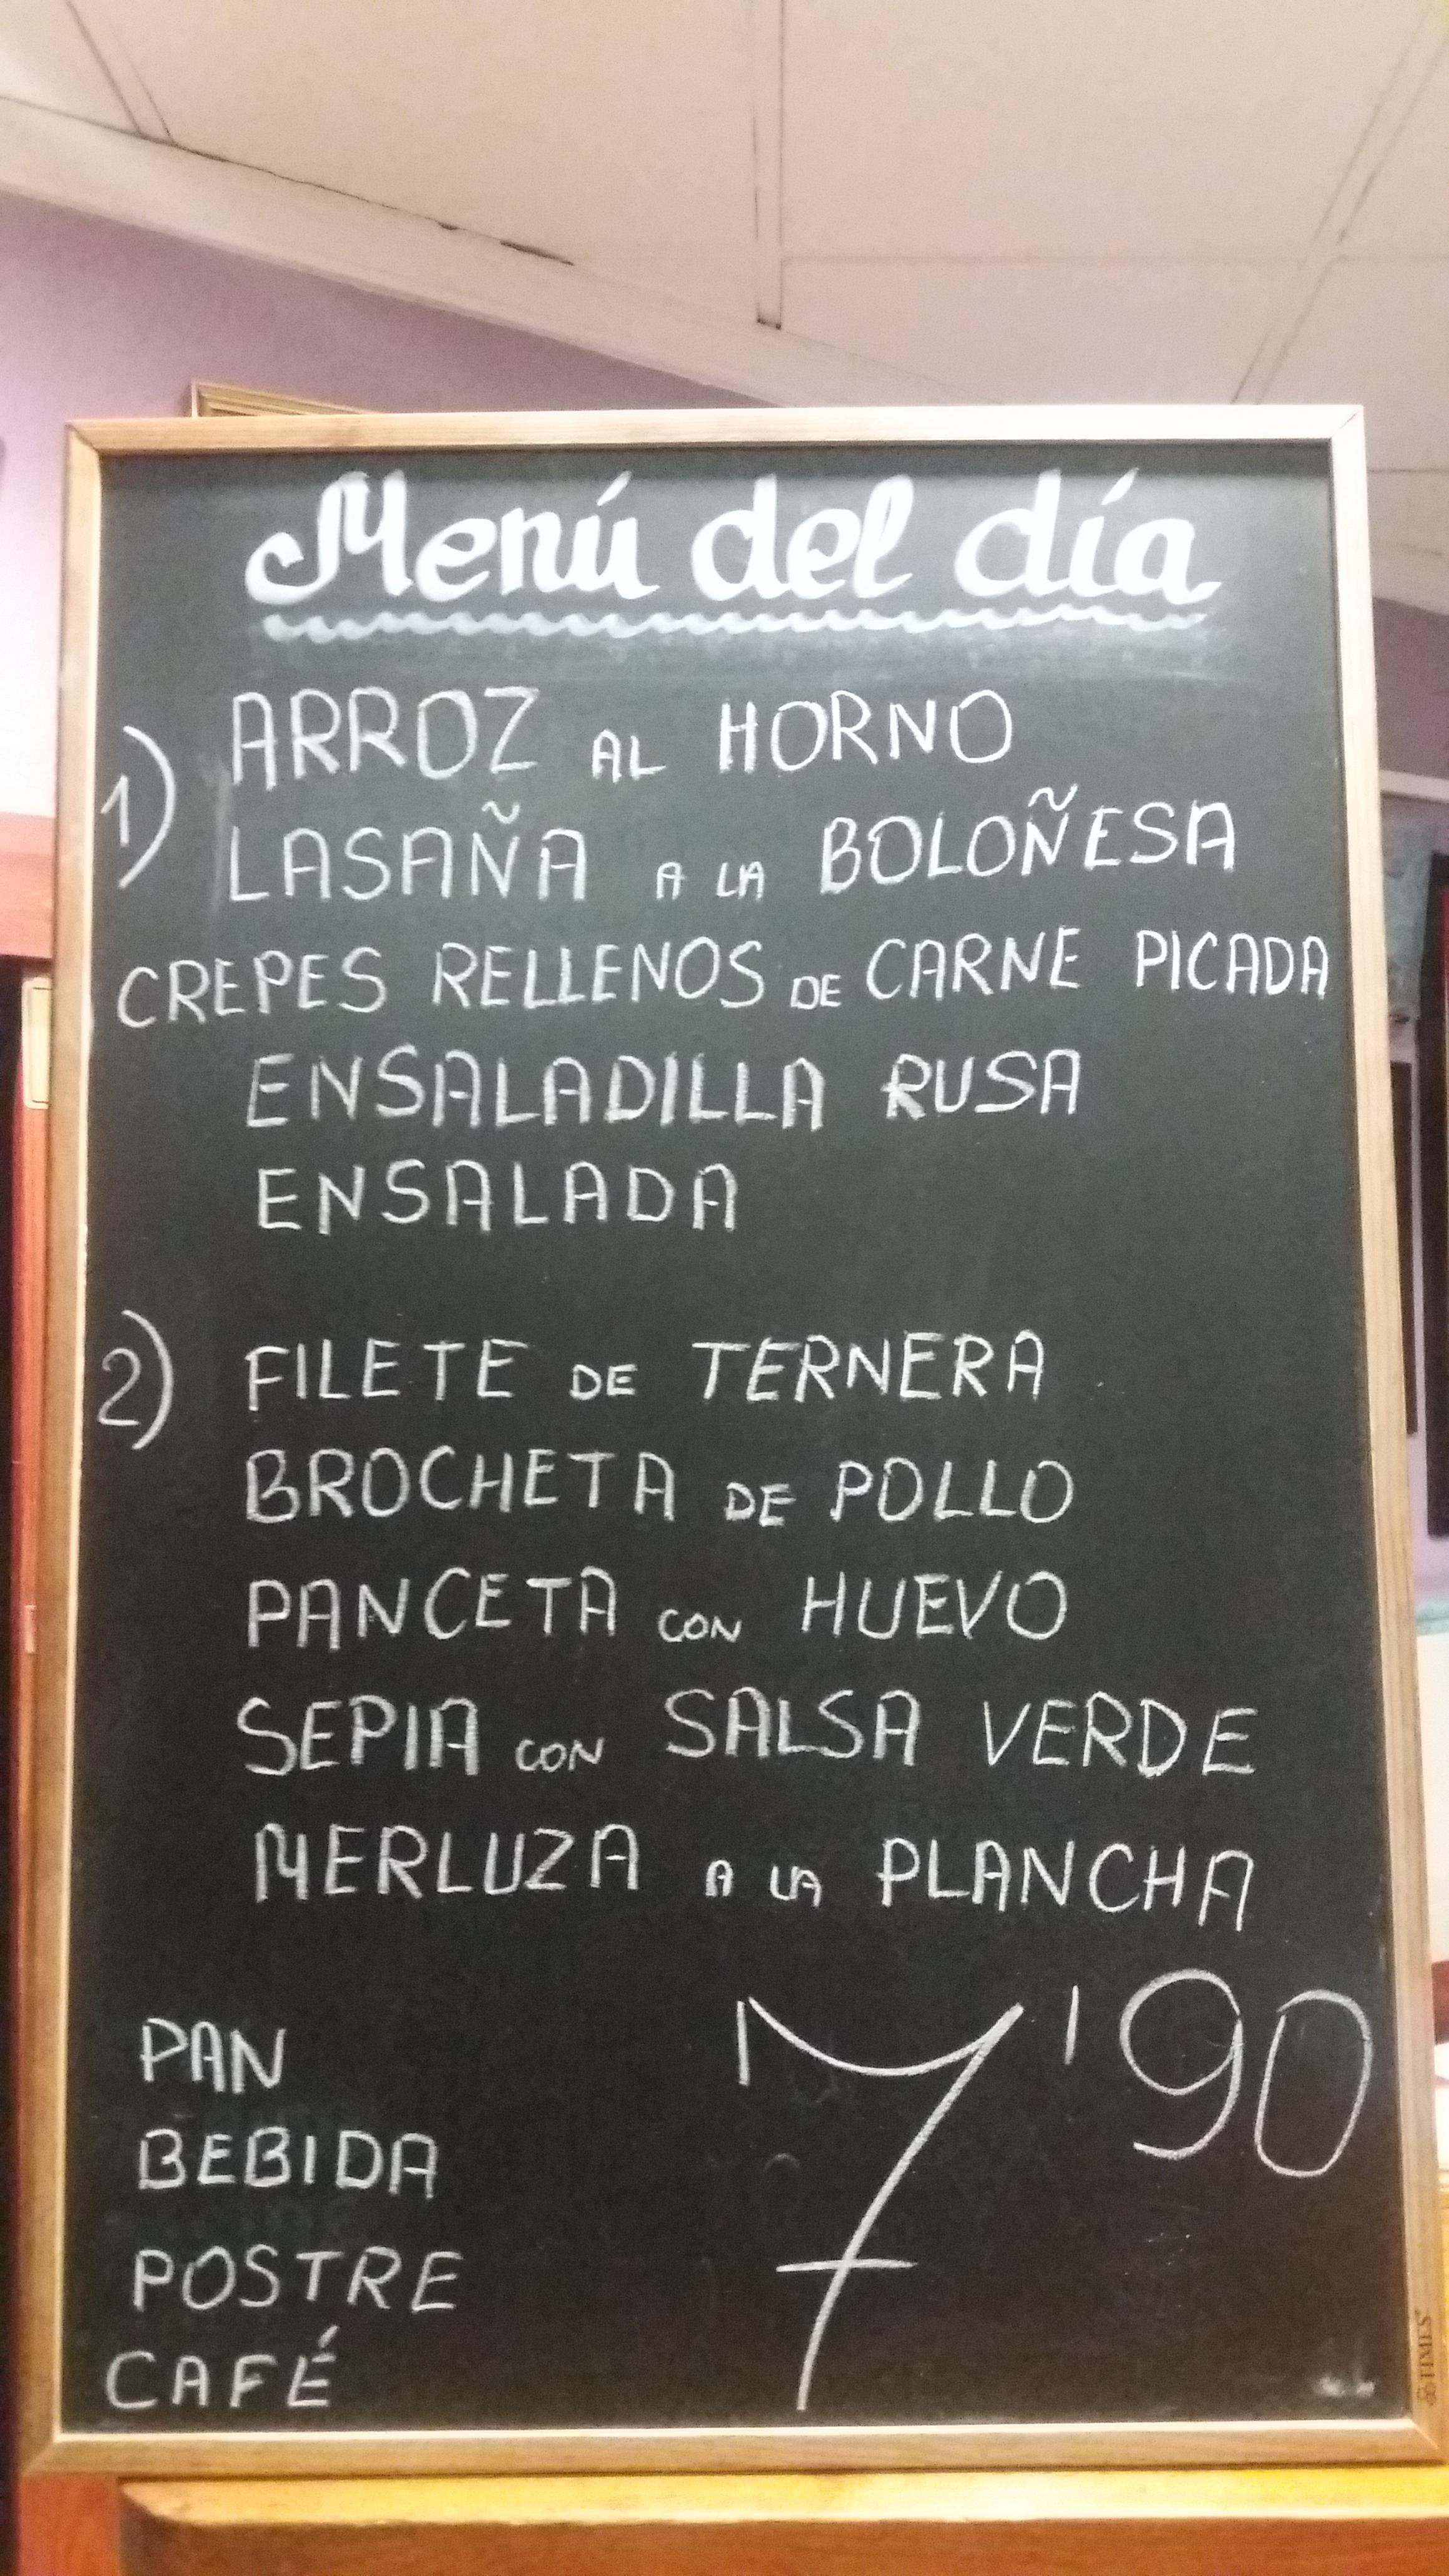 Menú del día
1) ARROZ AL HORNO
LASAÑA A LA BOLOÑESA
CREPES RELLENOS DE CARNE PICADA
ENSALADILLA RUSA
ENSALADA
2) FILETE DE TERNERA
BROCHETA DE POLLO
PANCETA CON HUEVO
SEPIA CON SALSA VERDE
MERLUZA A LA PLANCHA
PAN
BEBIDA
POSTRE
CAFÉ
7'90
TIMES